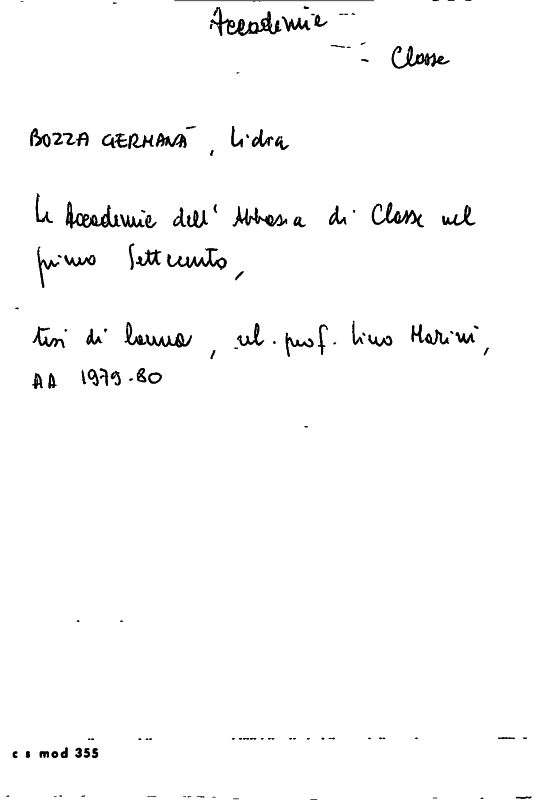 Accademie
Classe
BOZZA GERMANÀ, Lidra
Le Accademie dell'Abbasia di Classe nel
primo Settecento,
tesi di laurea, rel. prof. Lino Marini,
AA 1979-80
c s mod 355